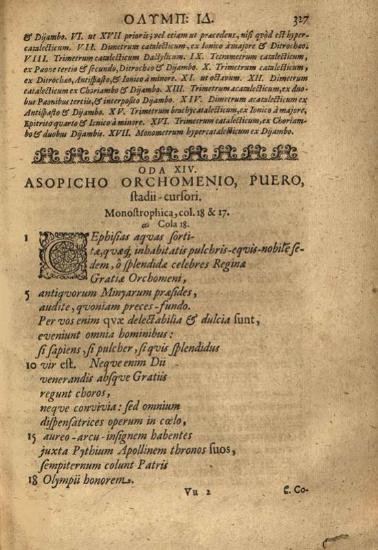 ΟΛΥΜΠ: ΙΔ. 327
& Dijambo. VI. ut XVII prioris; vel etiam ut præcedens, nisi quòd est hyper-
catalecticum. VII. Dimetrum catalecticum, ex Ionico à majore & Ditrochæo.
VIII. Trimetrum catalecticum Dactylicum. IX. Tetrametrum catalecticum,
ex Pæone tertio & secundo, Ditrochæo & Dijambo. X. Trimetrum catalecticum,
ex Ditrochæo, Antispasto, & Ionico à minore. XI. ut octavum. XII. Dimetrum
catalecticum ex Choriambo & Dijambo. XIII. Trimetrum acatalecticum, ex duo-
bus Pæonibus tertiis, & interposito Dijambo. XIV. Dimetrum acatalecticum ex
Antispasto & Dijambo. XV. Trimetrum brachycatalecticum, ex Ionico à majore,
Epitrito quarto & Ionico à minore. XVI. Trimetrum catalecticum, ex Choriam-
bo & duobus Dijambis. XVII. Monometrum hypercatalecticum ex Dijambo.
ODA XIV.
ASOPICHO ORCHOMENIO, PUERO,
stadii-cursori.
Monostrophica, col. 18 & 17.
Cola 18.
1 CEphisias aquas sorti-
tæ, quæq; inhabitatis pulchris-equis-nobilē se-
dem, ô splendidæ celebres Reginæ
Gratiæ Orchomeni,
5 antiquorum Minyarum præsides,
audite, quoniam preces-fundo.
Per vos enim quæ delectabilia & dulcia sunt,
eveniunt omnia hominibus:
si sapiens, si pulcher, si quis splendidus
10 vir est. Neque enim Dii
venerandis absque Gratiis
regunt choros,
neque convivia: sed omnium
dispensatrices operum in cœlo,
15 aureo-arcu-insignem habentes
juxta Pythium Apollinem thronos suos,
sempiternum colunt Patris
18 Olympii honorem.
Vu 2 ε. Co-